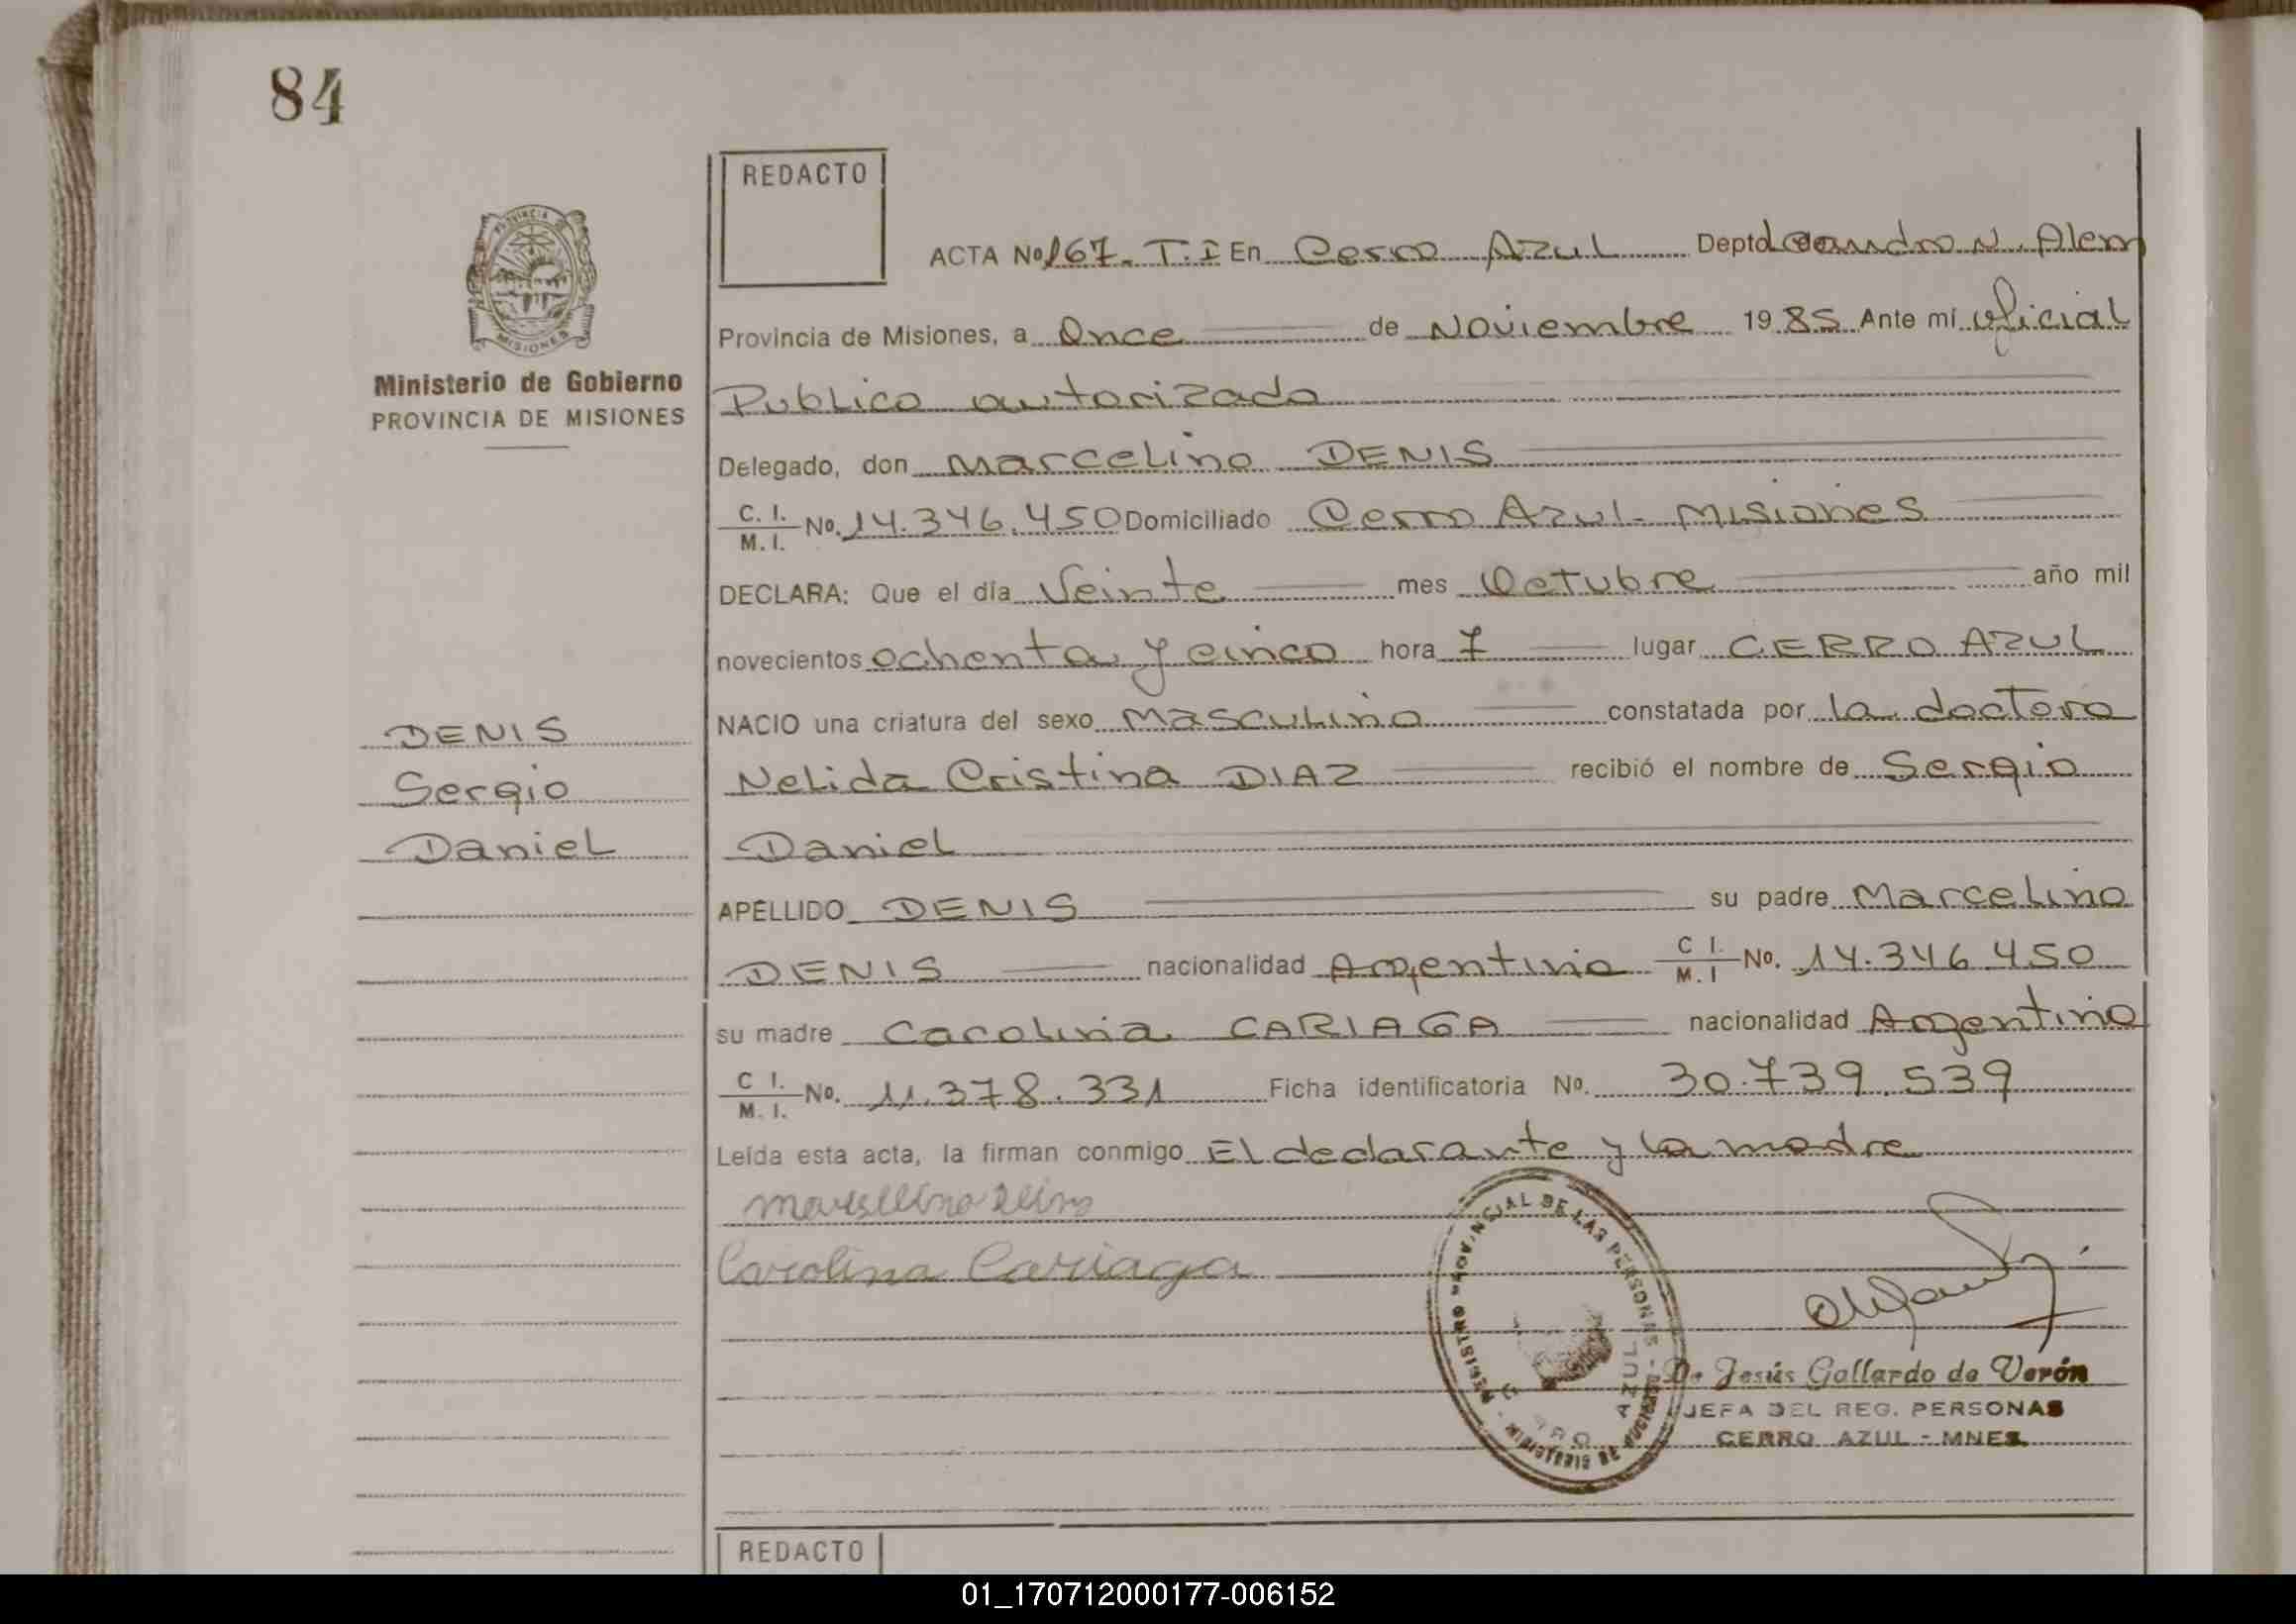 84
REDACTO
ACTA Nº 167.. T.I En Cerro Azul Depto Leandro N. Alem
PROVINCIA DE
MISIONES
Ministerio de Gobierno
PROVINCIA DE MISIONES
Provincia de Misiones, a Once de Noviembre 1985 Ante mí oficial
Publico autorizado
Delegado, don Marcelino DENIS
C. I. / M. I. Nº. 14.346.450 Domiciliado Cerro Azul- Misiones
DECLARA: Que el día Veinte mes Octubre año mil
novecientos ochenta y cinco hora 7 lugar CERRO AZUL
NACIO una criatura del sexo Masculino constatada por la doctora
Nelida Cristina DIAZ recibió el nombre de Sergio
Daniel
DENIS
Sergio
Daniel
APELLIDO DENIS su padre Marcelino
DENIS nacionalidad Argentina C I. / M. I Nº. 14.346.450
su madre Carolina CARIAGA nacionalidad Argentina
C I. / M. I. Nº. 11.378.331 Ficha identificatoria Nº. 30.739.539
Leída esta acta, la firman conmigo El declarante y la madre
Carolina Cariaga
REGISTRO PROVINCIAL DE LAS PERSONAS
CERRO AZUL
Jesús Gallardo de Verón
JEFA DEL REG. PERSONAS
CERRO AZUL - MNES
REDACTO
01_170712000177-006152